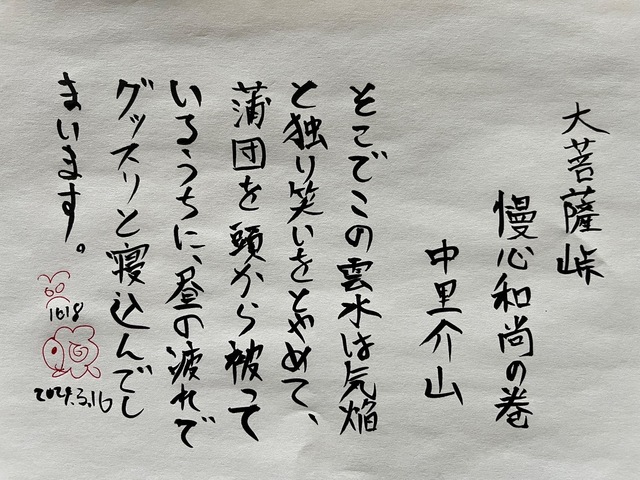 大菩薩峠
慢心和尚の巻
中里介山
そこでこの雲水は気焔
と独り笑いをとやめて、
蒲団を頭から被って
いるうちに、昼の疲れで
グッスリと寝込んでし
まいます。
1618
2024.3.16